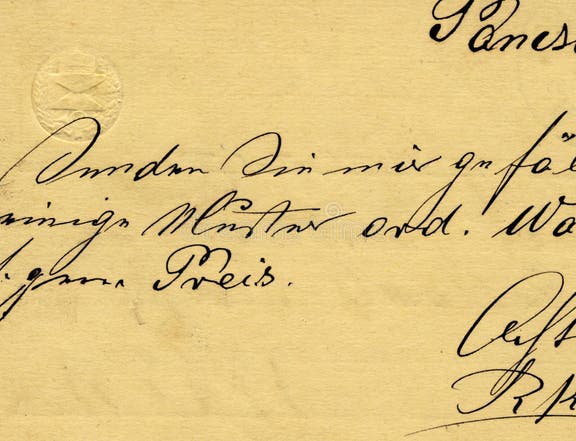 Pancs
Senden Sie mir gefäl
einige Muster ord. Wa
Preis.
Acht